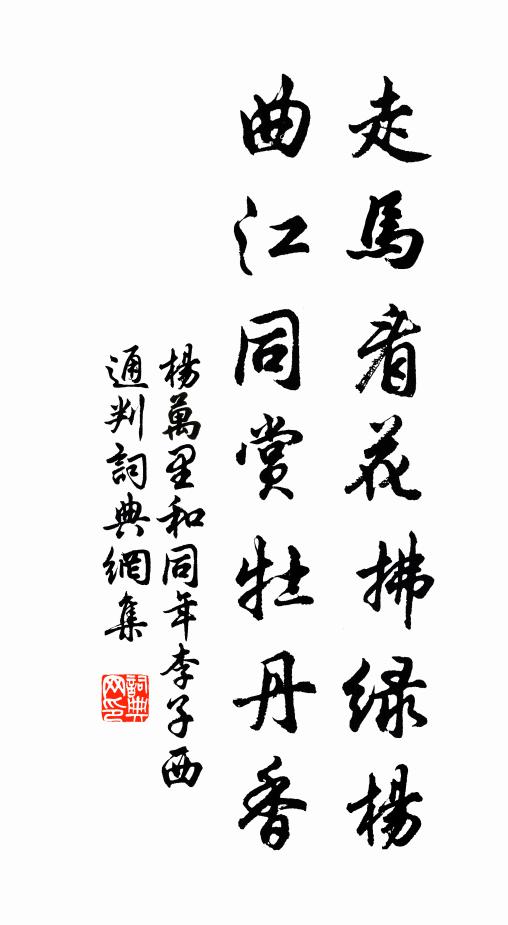 走馬看花拂绿楊
曲江同赏牡丹香
楊萬里和同年李子西
通判詞典網集
詞典
网印